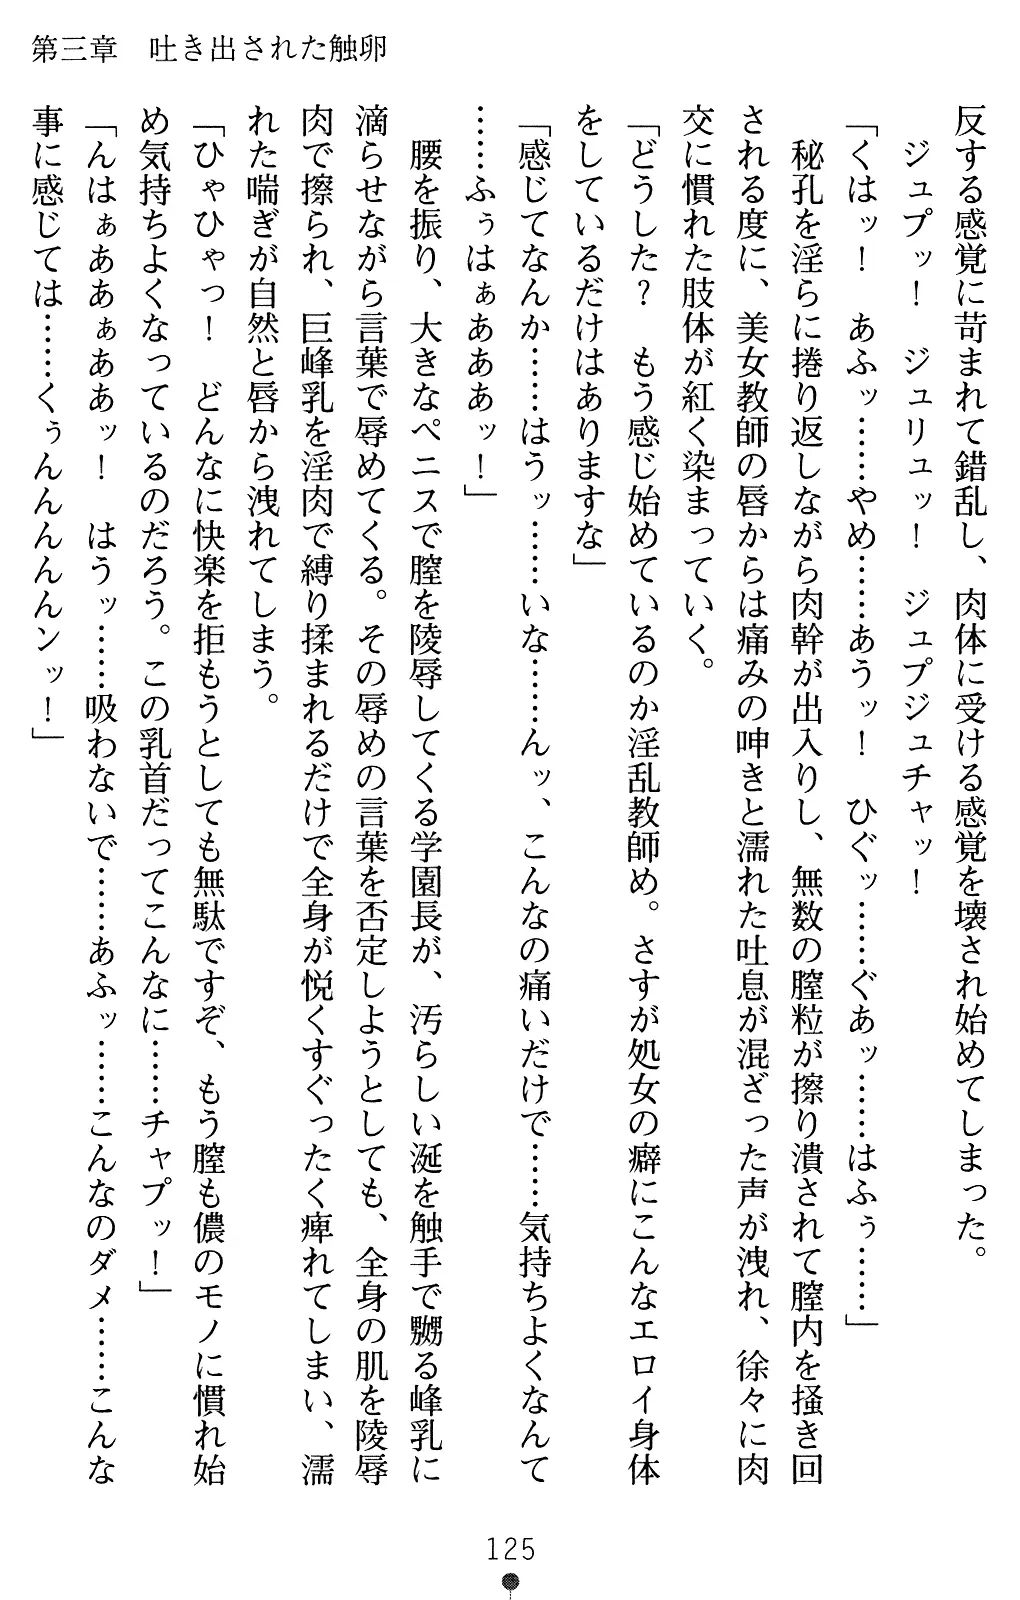 第三章　吐き出された触卵
反する感覚に苛まれて錯乱し、肉体に受ける感覚を壊され始めてしまった。
　ジュプッ！　ジュリュッ！　ジュプジュチャッ！
「くはッ！　あふッ……やめ……あうッ！　ひぐッ……ぐあッ……はふぅ……」
　秘孔を淫らに捲り返しながら肉幹が出入りし、無数の膣粒が擦り潰されて膣内を掻き回
される度に、美女教師の唇からは痛みの呻きと濡れた吐息が混ざった声が洩れ、徐々に肉
交に慣れた肢体が紅く染まっていく。
「どうした？　もう感じ始めているのか淫乱教師め。さすが処女の癖にこんなエロイ身体
をしているだけはありますな」
「感じてなんか……はうッ……いな……んッ、こんなの痛いだけで……気持ちよくなんて
……ふぅはぁあああッ！」
　腰を振り、大きなペニスで膣を陵辱してくる学園長が、汚らしい涎を触手で嬲る峰乳に
滴らせながら言葉で辱めてくる。その辱めの言葉を否定しようとしても、全身の肌を陵辱
肉で擦られ、巨峰乳を淫肉で縛り揉まれるだけで全身が悦くすぐったく痺れてしまい、濡
れた喘ぎが自然と唇から洩れてしまう。
「ひゃひゃっ！　どんなに快楽を拒もうとしても無駄ですぞ、もう膣も儂のモノに慣れ始
め気持ちよくなっているのだろう。この乳首だってこんなに……チャプッ！」
「んはぁああぁああッ！　はうッ……吸わないで……あふッ……こんなのダメ……こんな
事に感じては……くぅんんんんンッ！」
125